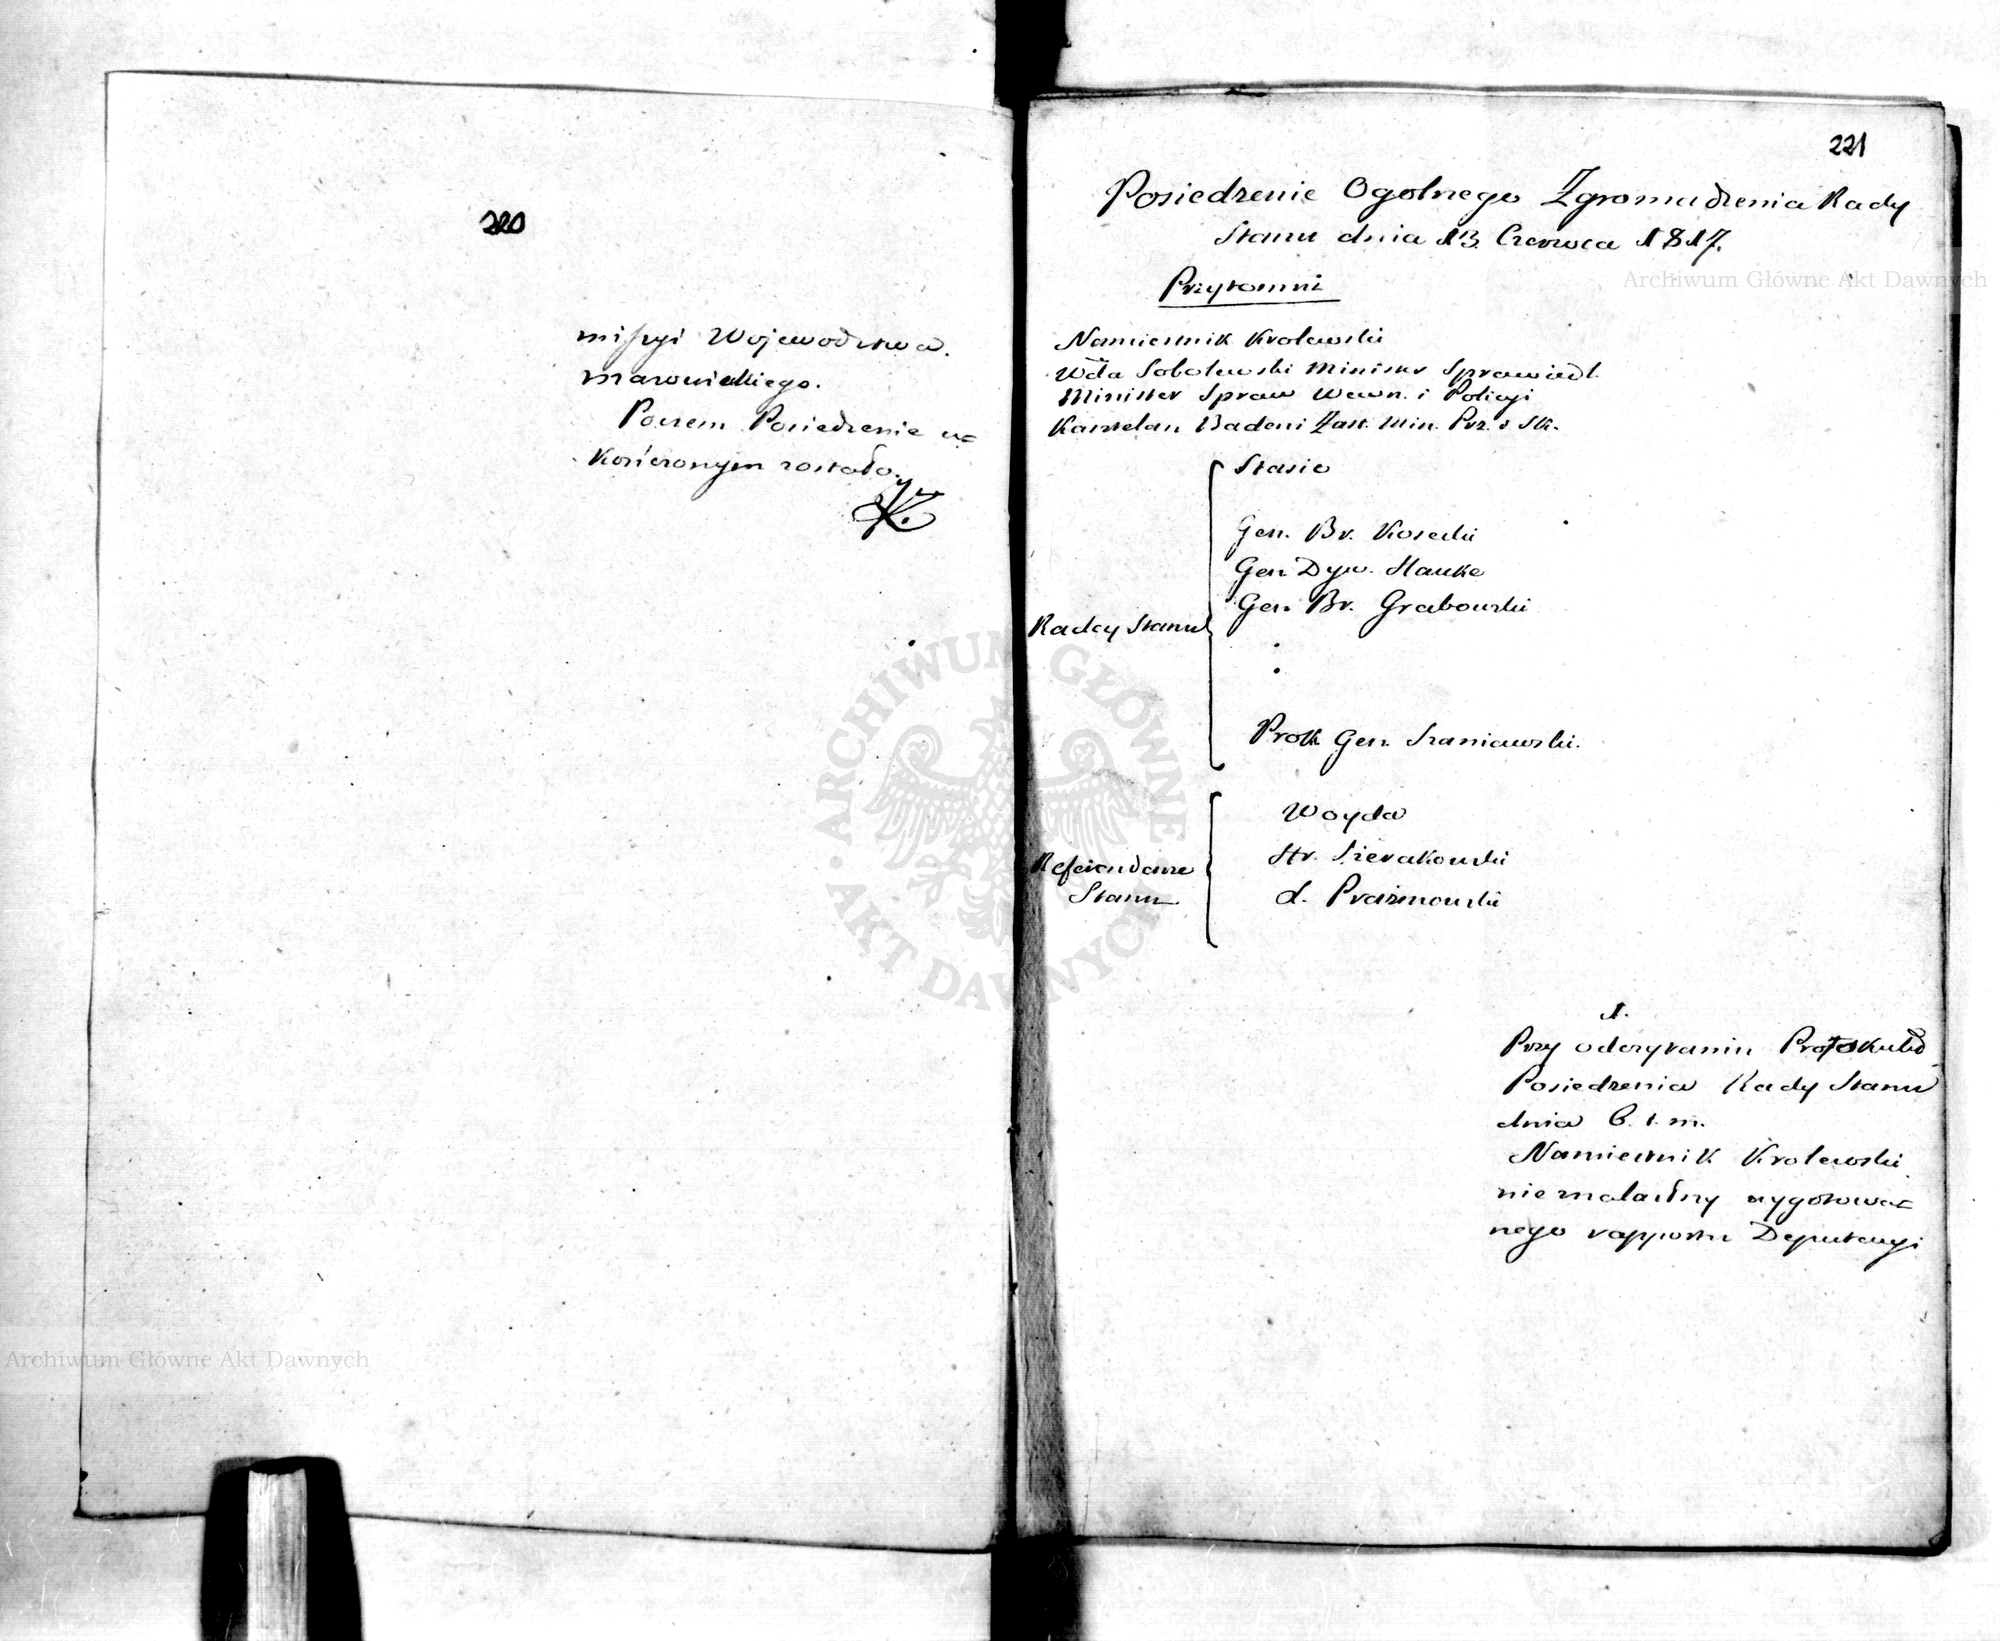 220
missyi Wojewodztwa
mazowieckiego.
Poczem Posiedzenie u=
kończonym zostało.
221
Posiedzenie Ogolnego Zgromadzenia Rady
Stanu dnia 13. Czerwca 1817.
Przytomni
Namiestnik Krolewski
Wda Sobolewski Minister Sprawiedl.
Minister Spraw Wewn. i Policyi
Kasztelan Badeni Zast. Min. Prz. i Sk.
Stasic
Gen. Br. Kosecki
Gen. Dyw. Hauke
Gen. Br. Grabowski
Radcy Stanu
Prok. Gen. Szaniawski.
Woyda
Hr. Sierakowski
Referendarze
Stanu
X. Prażmowski
1.
Przy odczytaniu Protokułu
Posiedzenia Rady Stanu
dnia 6. t. m.
Namiestnik Krolewski
nieznalazłszy wygotowa=
nego rapportu Deputacyi
Archiwum Główne Akt Dawnych
Archiwum Główne Akt Dawnych
ARCHIWUM GŁÓWNE AKT DAWNYCH